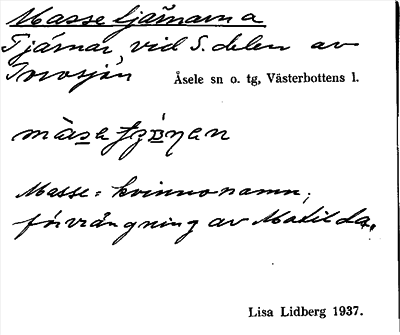 Massetjärnarna
Tjärnar vid S. delen av
Åsele sn o. tg, Västerbottens l.
Masse = kvinnonamn,
förvrängning av Matilda.
Lisa Lidberg 1937.